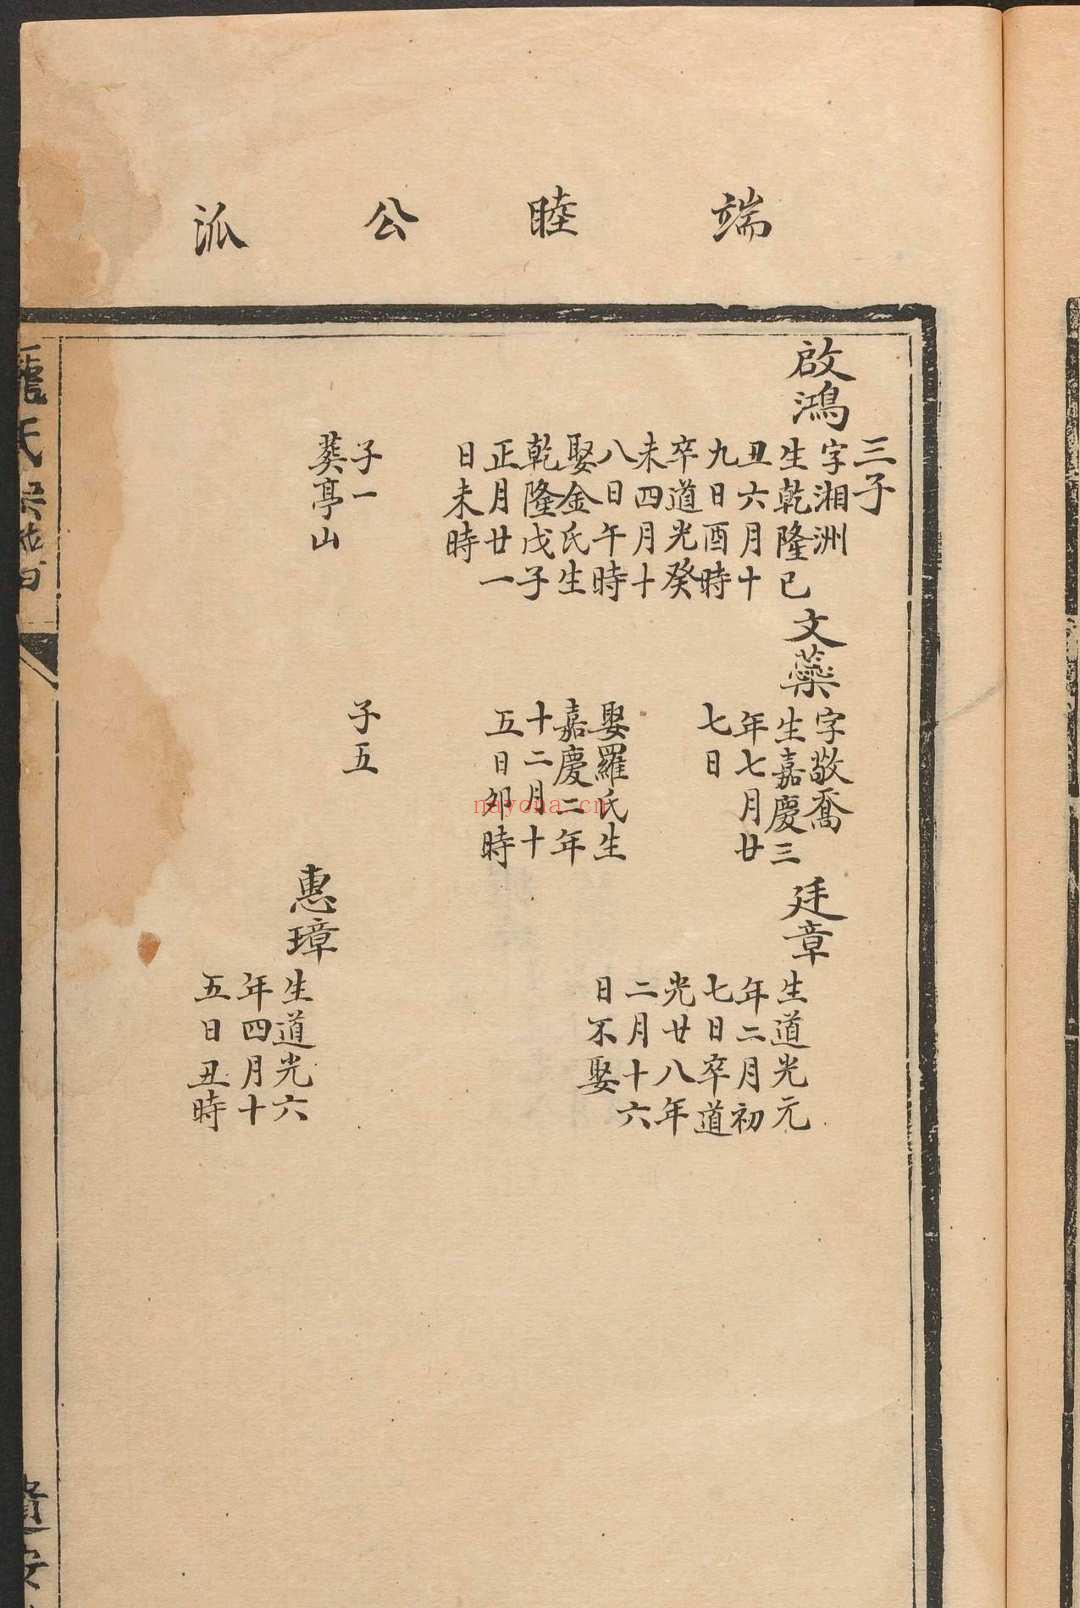 端睦公派
啟鴻
三子
字湘洲
生乾隆己
丑六月十
九日酉時
卒道光癸
未四月十
八日午時
娶金氏生
乾隆戊子
正月廿一
日未時
子一
葬亭山
文蘂
字敬喬
生嘉慶三
年七月廿
七日
娶羅氏生
嘉慶二年
十二月十
五日卯時
子五
廷章
生道光元
年二月初
七日卒道
光廿八年
二月十六
日不娶
惠璋
生道光六
年四月十
五日丑時
nayona.cn